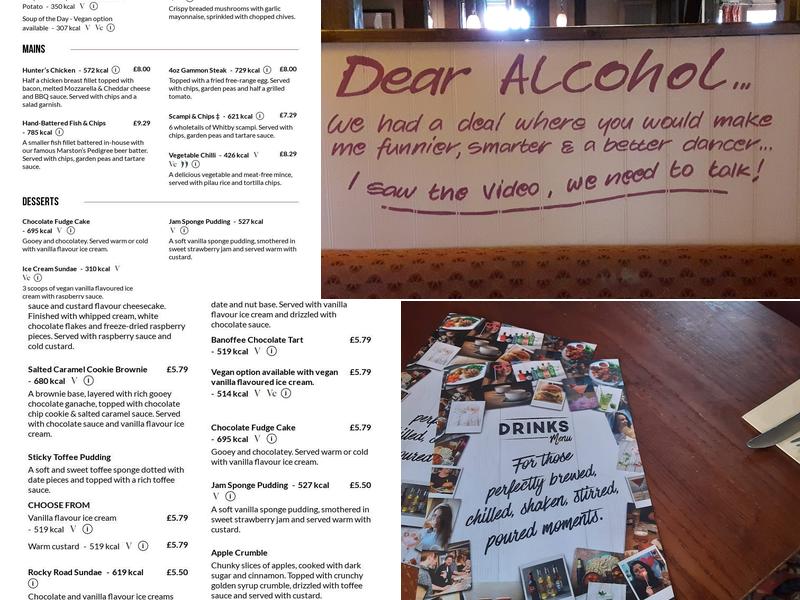 Potato - 350 kcal V i
Soup of the Day - Vegan option
available - 307 kcal V Ve i
Crispy breaded mushrooms with garlic
mayonnaise, sprinkled with chopped chives.
MAINS
Hunter's Chicken - 572 kcal i £8.00
Half a chicken breast fillet topped with
bacon, melted Mozzarella & Cheddar cheese
and BBQ sauce. Served with chips and a
salad garnish.
Hand-Battered Fish & Chips £9.29
- 785 kcal i
A smaller fish fillet battered in-house with
our famous Marston's Pedigree beer batter.
Served with chips, garden peas and tartare
sauce.
4oz Gammon Steak - 729 kcal i £8.00
Topped with a fried free-range egg. Served
with chips, garden peas and half a grilled
tomato.
Scampi & Chips ‡ - 621 kcal i £7.29
6 wholetails of Whitby scampi. Served with
chips, garden peas and tartare sauce.
Vegetable Chilli - 426 kcal V £8.29
Ve i
A delicious vegetable and meat-free mince,
served with pilau rice and tortilla chips.
DESSERTS
Chocolate Fudge Cake
- 695 kcal V i
Gooey and chocolatey. Served warm or cold
with vanilla flavour ice cream.
Ice Cream Sundae - 310 kcal V
Ve i
3 scoops of vegan vanilla flavoured ice
cream with raspberry sauce.
Jam Sponge Pudding - 527 kcal
V i
A soft vanilla sponge pudding, smothered in
sweet strawberry jam and served warm with
custard.
Dear Alcohol...
We had a deal where you would make
me funnier, smarter & a better dancer...
I saw the video, we need to talk!
sauce and custard flavour cheesecake.
Finished with whipped cream, white
chocolate flakes and freeze-dried raspberry
pieces. Served with raspberry sauce and
cold custard.
Salted Caramel Cookie Brownie £5.79
- 680 kcal V i
A brownie base, layered with rich gooey
chocolate ganache, topped with chocolate
chip cookie & salted caramel sauce. Served
with chocolate sauce and vanilla flavour ice
cream.
Sticky Toffee Pudding
A soft and sweet toffee sponge dotted with
date pieces and topped with a rich toffee
sauce.
CHOOSE FROM
Vanilla flavour ice cream £5.79
- 519 kcal V i
Warm custard - 519 kcal V i £5.79
Rocky Road Sundae - 619 kcal £5.50
i
Chocolate and vanilla flavour ice creams
date and nut base. Served with vanilla
flavour ice cream and drizzled with
chocolate sauce.
Banoffee Chocolate Tart £5.79
- 519 kcal V i
Vegan option available with vegan £5.79
vanilla flavoured ice cream.
- 514 kcal V Ve i
Chocolate Fudge Cake £5.79
- 695 kcal V i
Gooey and chocolatey. Served warm or cold
with vanilla flavour ice cream.
Jam Sponge Pudding - 527 kcal £5.50
V i
A soft vanilla sponge pudding, smothered in
sweet strawberry jam and served warm with
custard.
Apple Crumble
Chunky slices of apples, cooked with dark
sugar and cinnamon. Topped with crunchy
golden syrup crumble, drizzled with toffee
sauce and served with custard.
DRINKS
Menu
For those
perfectly brewed,
chilled, shaken, stirred,
poured moments.